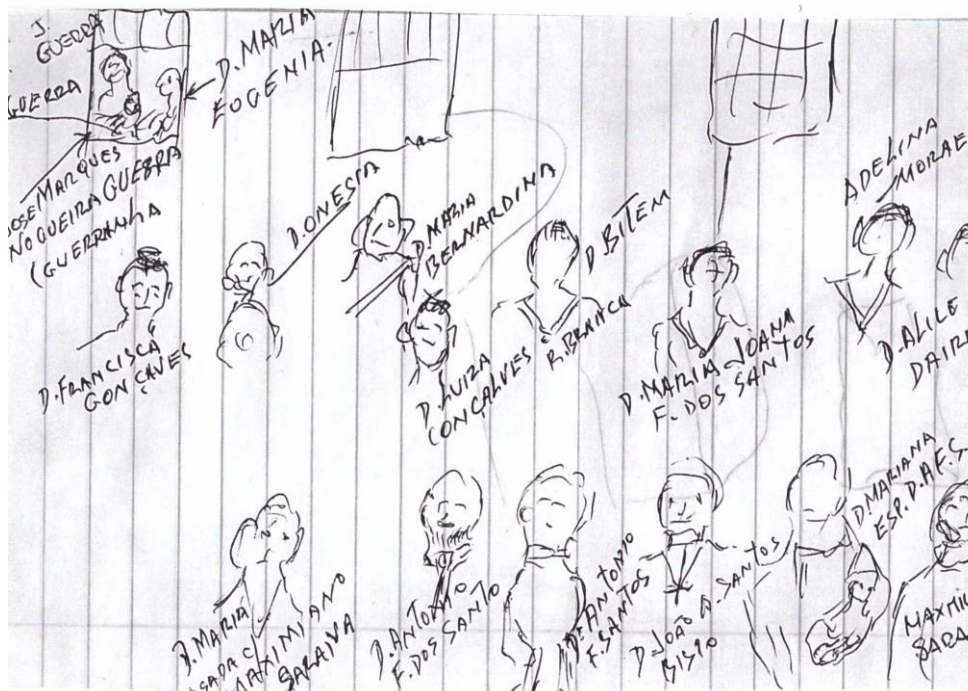 J.
GUERRA
GUERRA
D. MARIA
EOGENIA.
JOSE MARQUES
NOGUEIRA GUERRA
(GUERRANHA
D. ONESIA
D. MARIA
BERNARDINA
D. BILEM
R. BRANCO
ADELINA
MORAE
D. FRANCISCA
GONÇAVES
D. LUIZA
CONCALVES
D. MARIA JOANA
F. DOS SANTOS
D. ALILE
DAIRE
D. MARIA
CASADA C
MAXIMIANO
SARAIVA
D. ANTONIO
F. DOS SANTO
D. ANTONIO
F. SANTOS
D. JOÃO A. SANTOS
BISPO
D. MARIANA
ESP. D. A. F. S.
MAXMI
SARA